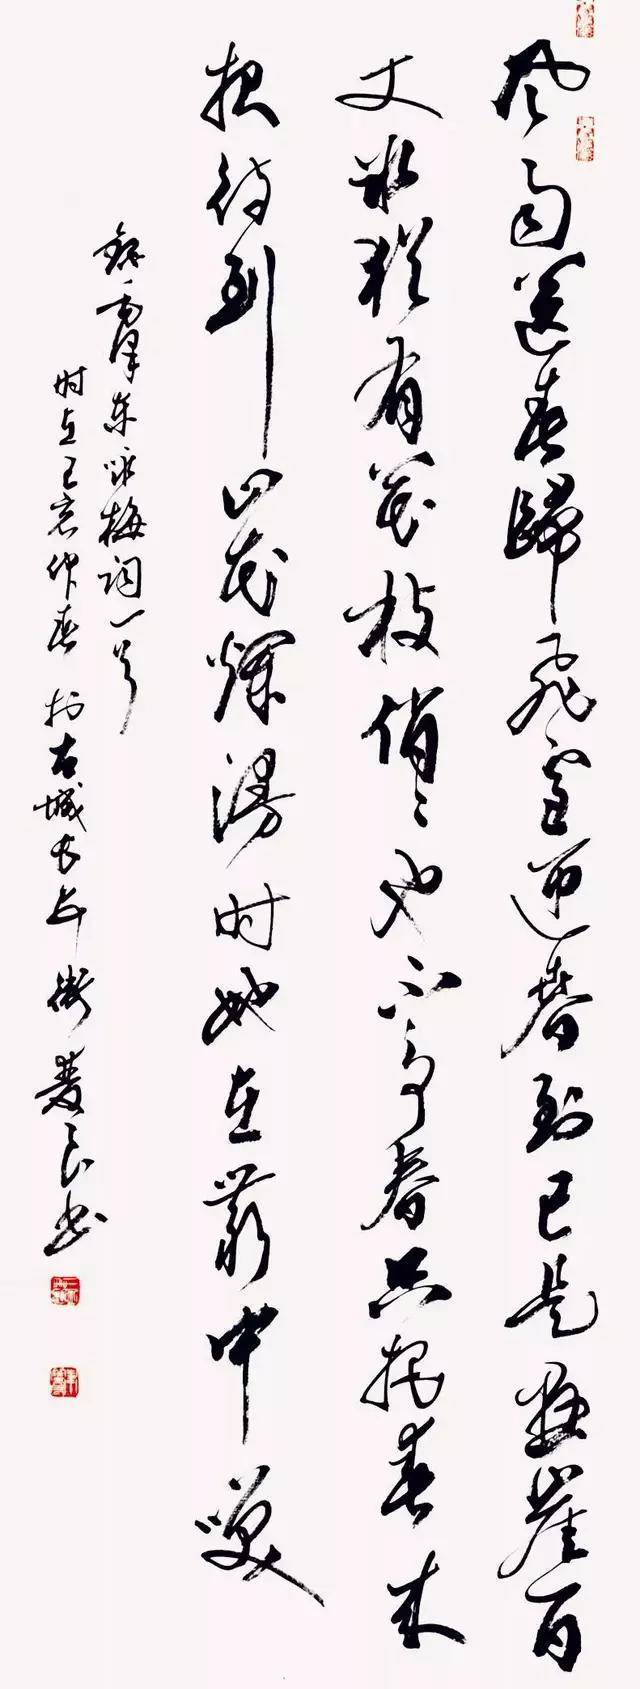 风雨送春歸飞雪迎春到已是悬崖百
丈冰犹有花枝俏々也不争春只把春来
报待到山花烂漫时她在丛中笑
录毛泽东咏梅词一首
时在己亥仲春于古城 良书